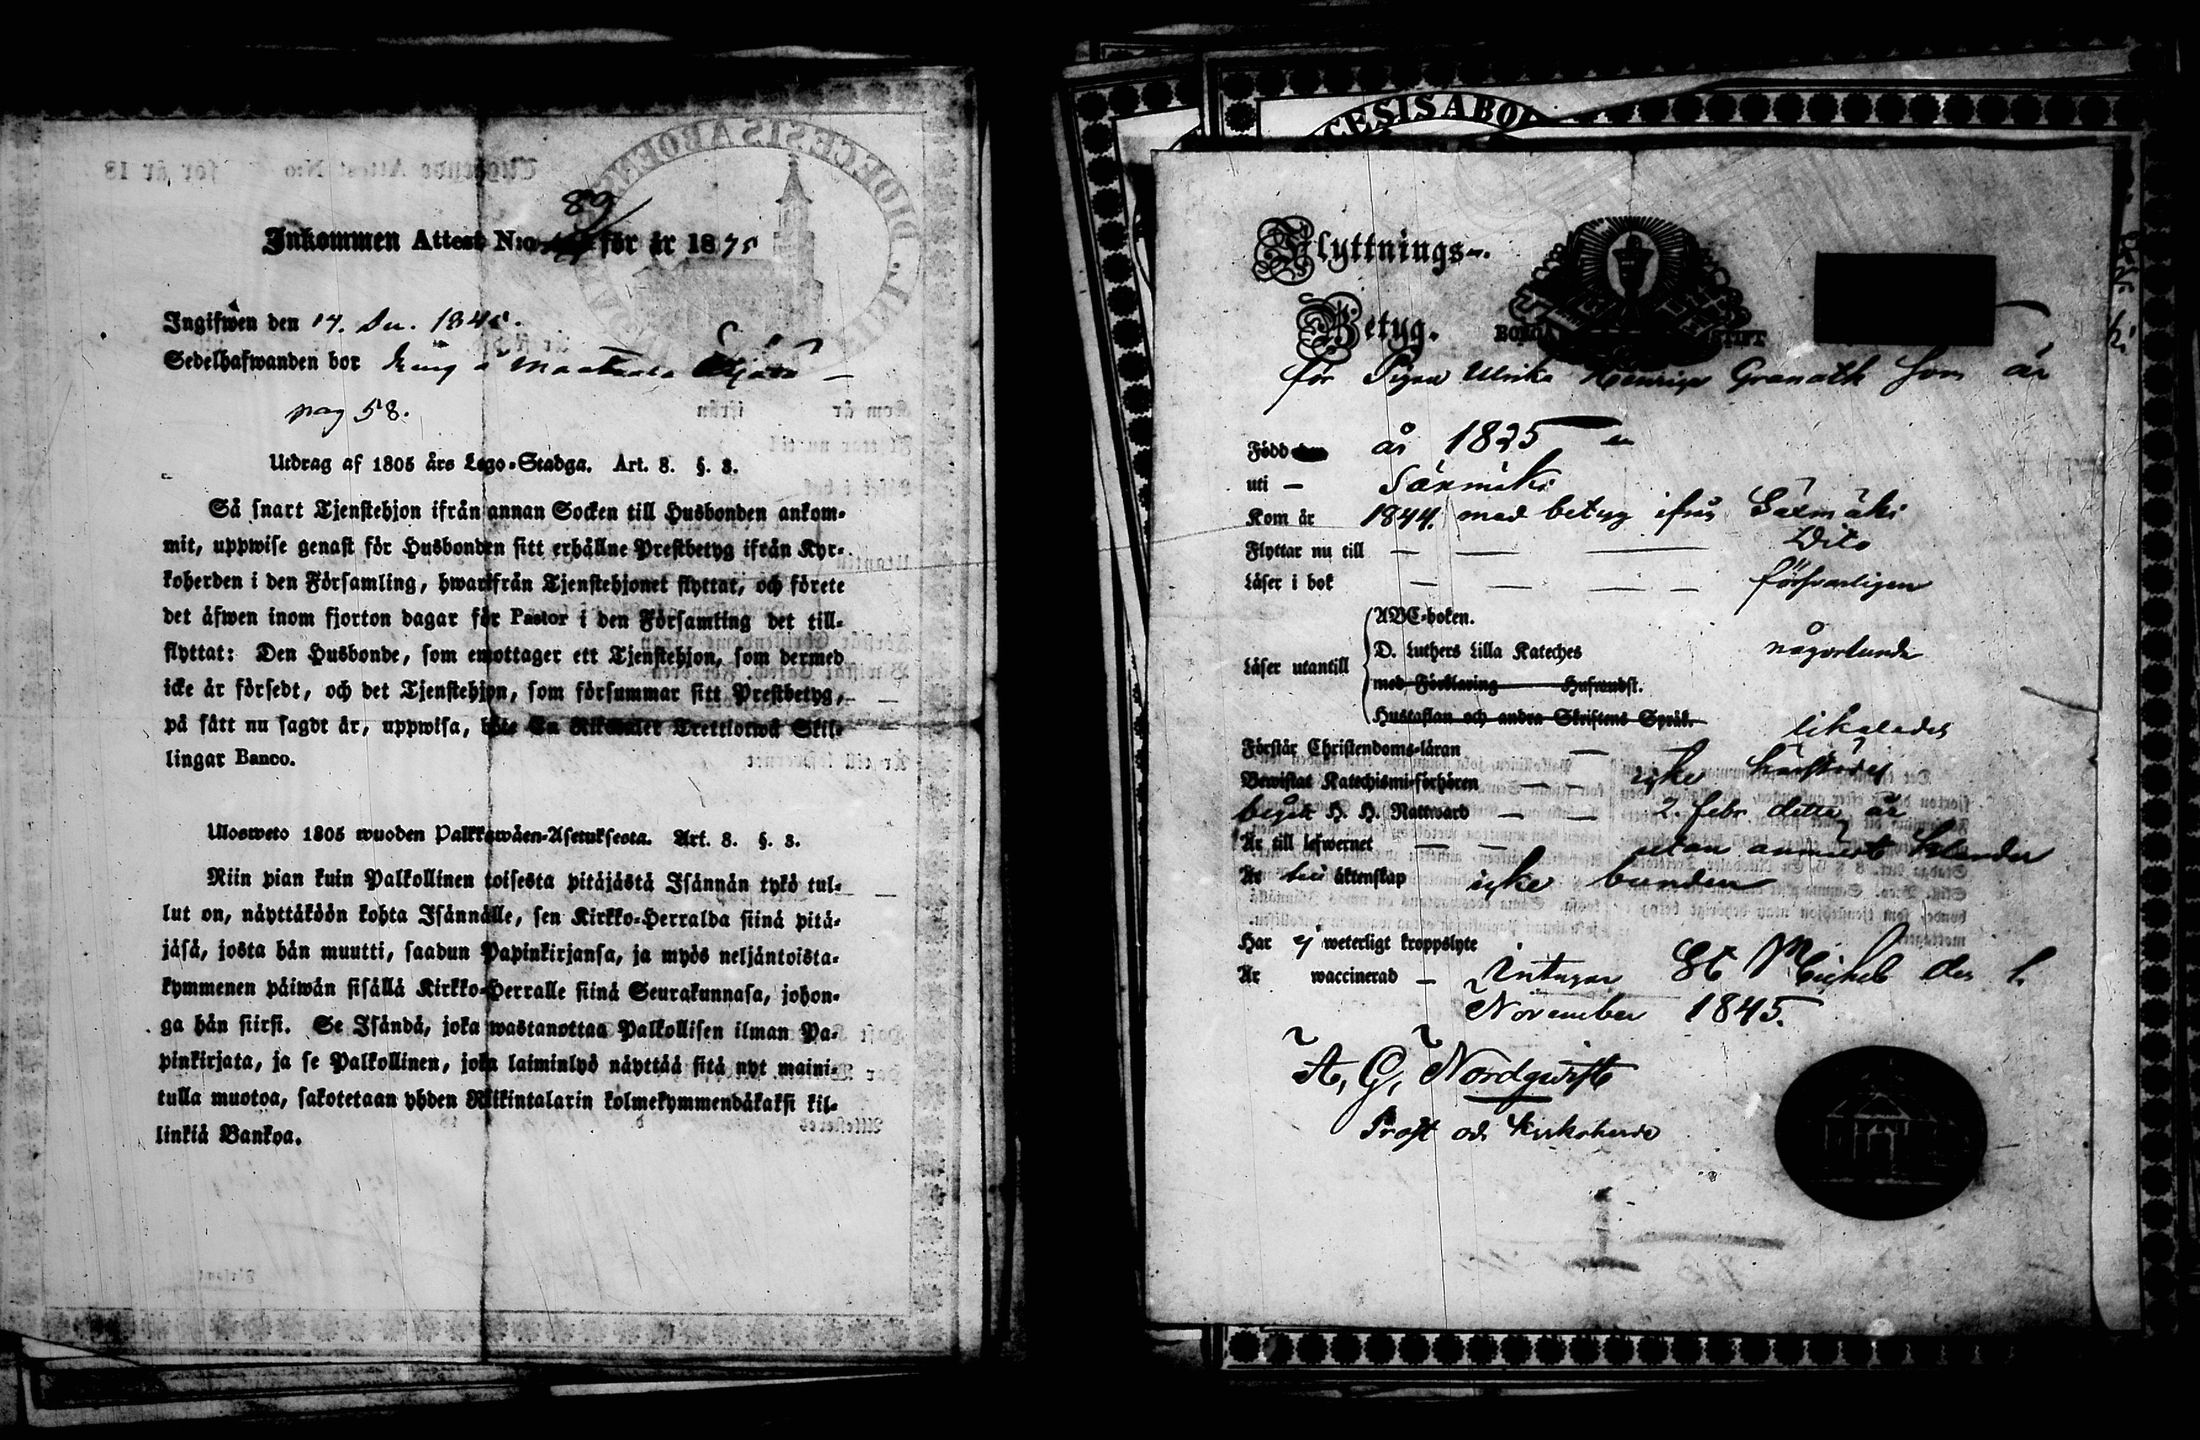 Inkommen Attest N:o 89 för år 1845
Ingifwen den 14. 1845.
Sedelhafwanden bor
pag 58.
Utdrag af 1805 års Lego-Stadga. Art. 8. §. 3.
Så snart Tjenstehjon ifrån annan Socken till Husbonden ankom-
mit, uppwise genast för Husbonden sitt erhållne Prestbetyg ifrån Kyr-
koherden i den Församling, hwarifrån Tjenstehjonet flyttat, och förete
det äfwen inom fjorton dagar för Pastor i den Församling det till-
flyttat: Den Husbonde, som emottager ett Tjenstehjon, som dermed
icke är försedt, och det Tjenstehjon, som försummar sitt Prestbetyg,
på sätt nu sagdt är, uppwisa, böte En Riksdaler Trettiotwå Skil-
lingar Banco.
Ulosweto 1805 wuoden Palkkawäen-Asetuksesta. Art. 8. §. 3.
Niin pian kuin Palkollinen toisesta pitäjästä Isännän tykö tul-
lut on, näyttäköön kohta Isännälle, sen Kirkko-Herralda siinä pitä-
jäsä, josta hän muutti, saadun Papinkirjansa, ja myös neljäntoista-
kymmenen päiwän sisällä Kirkko-Herralle siinä Seurakunnasa, johon-
ga hän siirsi. Se Isändä, joka wastanottaa Palkollisen ilman Pa-
pinkirjata, ja se Palkollinen, joka laiminlyö näyttää sitä nyt maini-
tulla muotoa, sakotetaan yhden Riikintalarin kolmekymmendäkaksi kil-
linkiä Bankoa.
DIOECESIS ABOENSIS
CESIS ABO
Flyttnings-
Betyg.
BORGÅ STIFT
för Pigan Ulrika Henrics Granath som är
Född år 1825
uti Säxmäki
Kom år 1844. med betyg ifrån Säxmäki
Flyttar nu till Dito
Läser i bok försvarligen
ABC-boken.
D. Luthers Lilla Kateches någorlunda
Läser utantill
med Förklaring Hufwudst.
Hustaflan och andra Skriftens Språk.
Förstår Christendoms-läran likaledes
Bewistat Katechismi-förhören icke
begått H. H. Nattward 2. febr. detta år
Är till lefwernet utan anmärkt
Är till äktenskap icke bunden
Har ej weterligt kroppslyte
Är waccinerad – Intygar St Michel den
November 1845.
A. G. Nordqvist
Prost och Kyrkoherde